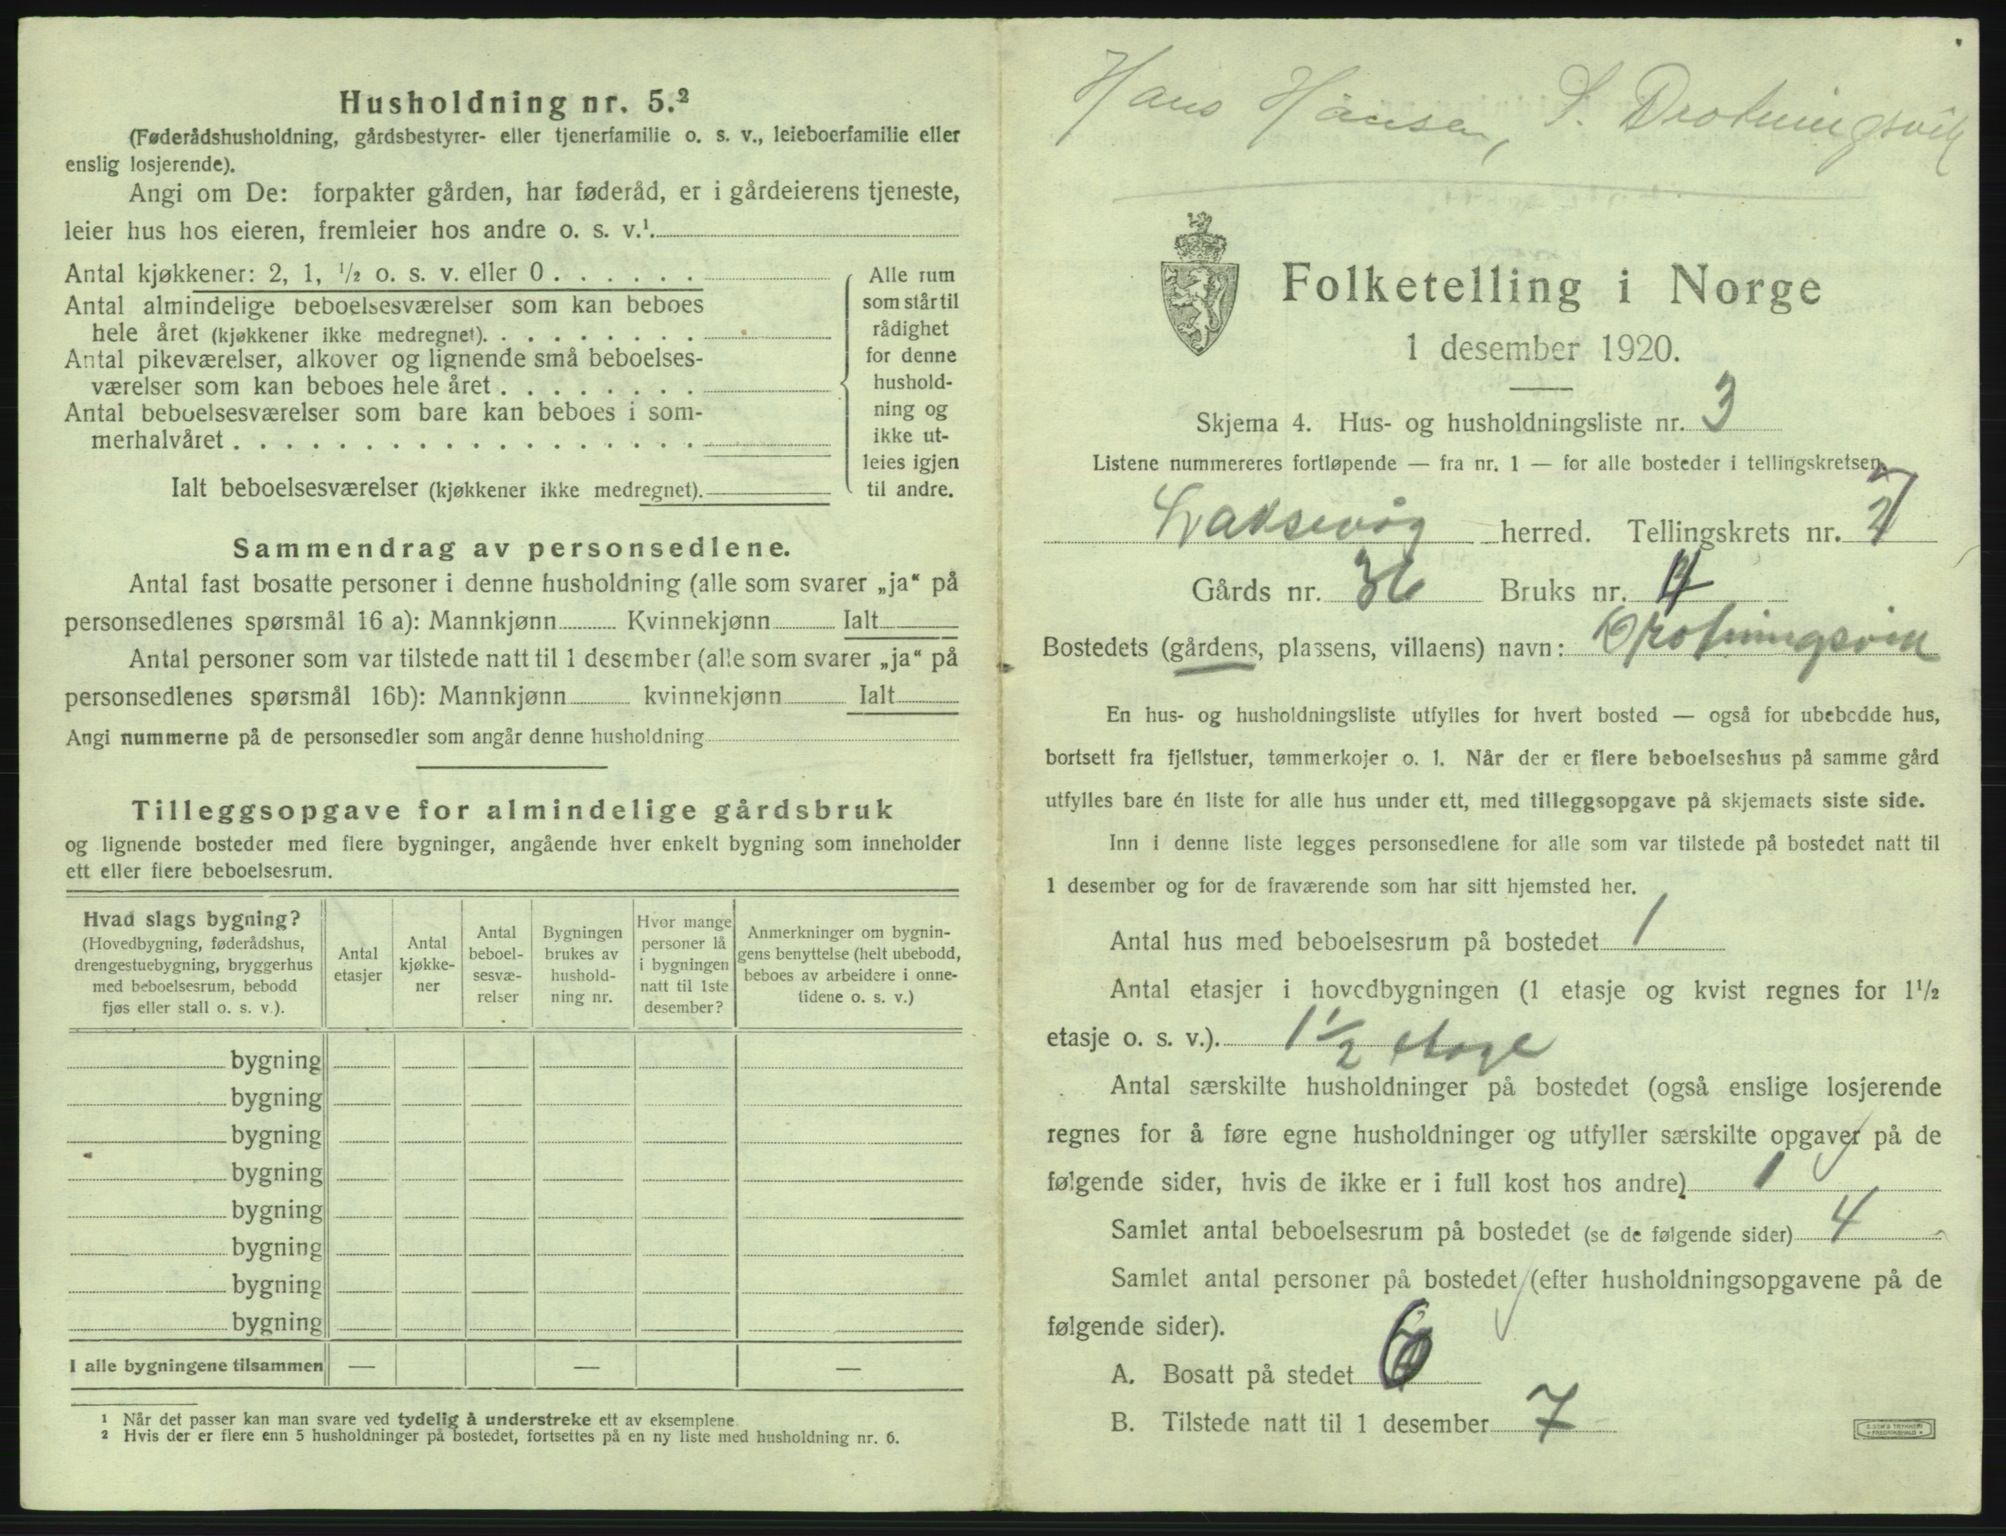 Husholdning nr. 5.²
(Føderådshusholdning, gårdsbestyrer- eller tjenerfamilie o. s. v., leieboerfamilie eller
enslig losjerende).
Angi om De: forpakter gården, har føderåd, er i gårdeierens tjeneste,
leier hus hos eieren, fremleier hos andre o. s. v.¹
Antal kjøkkener: 2, 1, ½ o. s. v. eller 0 . . . . . .
Antal almindelige beboelsesværelser som kan beboes
hele året (kjøkkener ikke medregnet). . . . . . . . .
Antal pikeværelser, alkover og lignende små beboelses-
værelser som kan beboes hele året . . . . . . . .
Antal beboelsesværelser som bare kan beboes i som-
merhalvåret . . . . . . . . . . . . . . . . . .
Ialt beboelsesværelser (kjøkkener ikke medregnet).
Alle rum
som står til
rådighet
for denne
hushold-
ning og
ikke ut-
leies igjen
til andre.
Sammendrag av personsedlene.
Antal fast bosatte personer i denne husholdning (alle som svarer „ja“ på
personsedlenes spørsmål 16 a): Mannkjønn Kvinnekjønn Ialt
Antal personer som var tilstede natt til 1 desember (alle som svarer „ja“ på
personsedlenes spørsmål 16b): Mannkjønn kvinnekjønn Ialt
Angi nummerne på de personsedler som angår denne husholdning
Tilleggsopgave for almindelige gårdsbruk
og lignende bosteder med flere bygninger, angående hver enkelt bygning som inneholder
ett eller flere beboelsesrum.
Hvad slags bygning?
(Hovedbygning, føderådshus,
drengestuebygning, bryggerhus
med beboelsesrum, bebodd
fjøs eller stall o. s. v.).
Antal
etasjer
Antal
kjøkke-
ner
Antal
beboel-
sesvæ-
relser
Bygningen
brukes av
hushold-
ning nr.
Hvor mange
personer lå
i bygningen
natt til 1ste
desember?
Anmerkninger om bygnin-
gens benyttelse (helt ubebodd,
beboes av arbeidere i onne-
tidene o. s. v.)
bygning
bygning
bygning
bygning
bygning
bygning
bygning
bygning
I alle bygningene tilsammen — — —
¹ Når det passer kan man svare ved tydelig å understreke ett av eksemplene
² Hvis der er flere enn 5 husholdninger på bostedet, fortsettes på en ny liste med husholdning nr. 6.
Hans Hansen, S. Drotningsvik
Folketelling i Norge
1 desember 1920.
Skjema 4. Hus- og husholdningsliste nr. 3
Listene nummereres fortløpende — fra nr. 1 — for alle bosteder i tellingskretsen.
Laksevåg herred. Tellingskrets nr. 7
Gårds nr. 36 Bruks nr.
Bostedets (gårdens, plassens, villaens) navn: Drotningsvik
En hus- og husholdningsliste utfylles for hvert bosted — også for ubebodde hus,
bortsett fra fjellstuer, tømmerkojer o. l. Når der er flere beboelseshus på samme gård
utfylles bare én liste for alle hus under ett, med tilleggsopgave på skjemaets siste side.
Inn i denne liste legges personsedlene for alle som var tilstede på bostedet natt til
1 desember og for de fraværende som har sitt hjemsted her.
Antal hus med beboelsesrum på bostedet 1
Antal etasjer i hovedbygningen (1 etasje og kvist regnes for 1½
etasje o. s. v.). 1½ etage
Antal særskilte husholdninger på bostedet (også enslige losjerende
regnes for å føre egne husholdninger og utfyller særskilte opgaver på de
følgende sider, hvis de ikke er i full kost hos andre) 1
Samlet antal beboelsesrum på bostedet (se de følgende sider) 4
Samlet antal personer på bostedet (efter husholdningsopgavene på de
følgende sider).
A. Bosatt på stedet 6
B. Tilstede natt til 1 desember 7